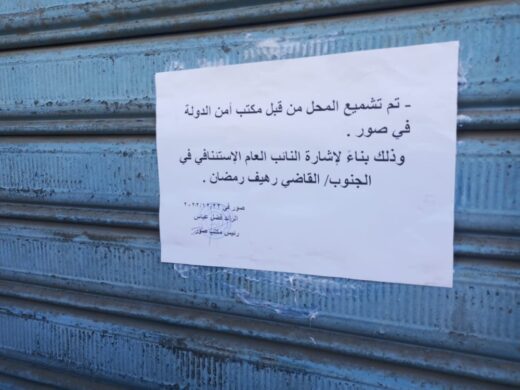 - تم تشميع المحل من قبل مكتب أمن الدولة
في صور .
وذلك بناءً لإشارة النائب العام الإستئنافي في
الجنوب/ القاضي رهيف رمضان .
صور في ٢٠٢٢/١٢/٢٣
الرائد فضل عباس
رئيس مكتب صور